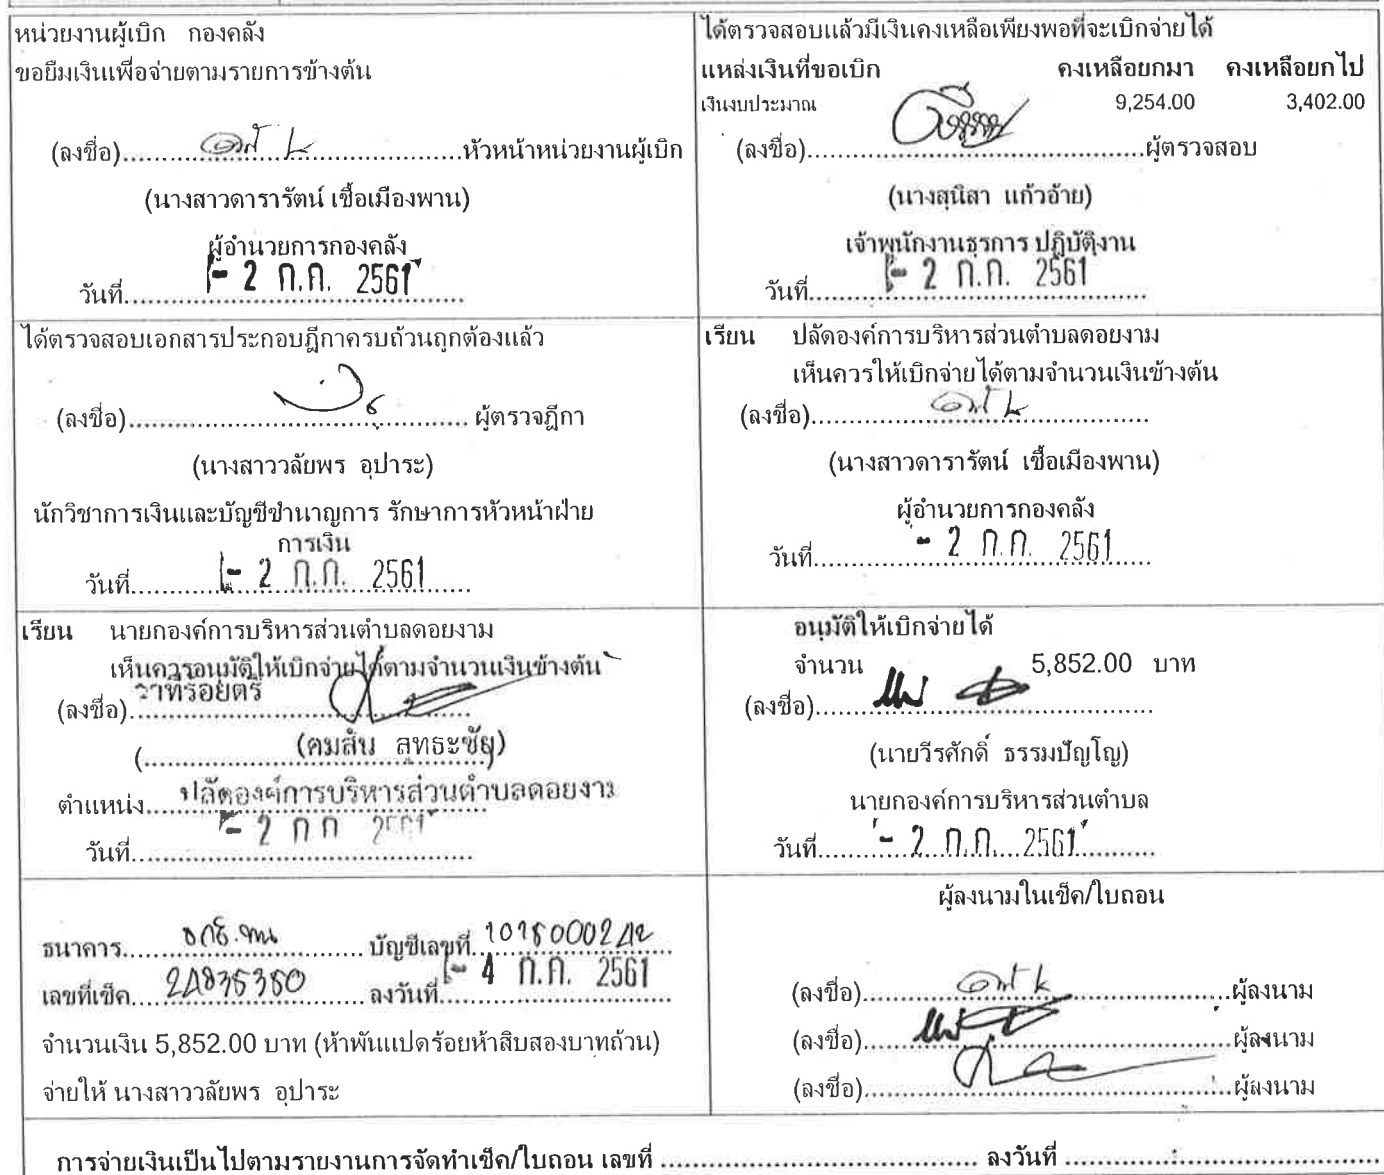 หน่วยงานผู้เบิก กองคลัง
ขอยืมเงินเพื่อจ่ายตามรายการข้างต้น
(ลงชื่อ)........................................หัวหน้าหน่วยงานผู้เบิก
(นางสาวดารารัตน์ เชื้อเมืองพาน)
ผู้อำนวยการกองคลัง
วันที่ - 2 ก.ค. 2561
ได้ตรวจสอบแล้วมีเงินคงเหลือเพียงพอที่จะเบิกจ่ายได้
แหล่งเงินที่ขอเบิก คงเหลือยกมา คงเหลือยกไป
เงินงบประมาณ 9,254.00 3,402.00
(ลงชื่อ)........................................ผู้ตรวจสอบ
(นางสุนิสา แก้วอ้าย)
เจ้าพนักงานธุรการ ปฏิบัติงาน
วันที่ - 2 ก.ค. 2561
ได้ตรวจสอบเอกสารประกอบฎีกาครบถ้วนถูกต้องแล้ว
(ลงชื่อ)........................................ ผู้ตรวจฎีกา
(นางสาววลัยพร อุปาระ)
นักวิชาการเงินและบัญชีชำนาญการ รักษาการหัวหน้าฝ่าย
การเงิน
วันที่ - 2 ก.ค. 2561
เรียน ปลัดองค์การบริหารส่วนตำบลดอยงาม
เห็นควรให้เบิกจ่ายได้ตามจำนวนเงินข้างต้น
(ลงชื่อ)........................................
(นางสาวดารารัตน์ เชื้อเมืองพาน)
ผู้อำนวยการกองคลัง
วันที่ - 2 ก.ค. 2561
เรียน นายกองค์การบริหารส่วนตำบลดอยงาม
เห็นควรอนุมัติให้เบิกจ่ายได้ตามจำนวนเงินข้างต้น
ว่าที่ร้อยตรี
(ลงชื่อ)........................................
(คมสัน สุทธะชัย)
ตำแหน่ง ปลัดองค์การบริหารส่วนตำบลดอยงาม
วันที่ - 2 ก.ค. 2561
อนุมัติให้เบิกจ่ายได้
จำนวน 5,852.00 บาท
(ลงชื่อ)........................................
(นายวีรศักดิ์ ธรรมปัญโญ)
นายกองค์การบริหารส่วนตำบล
วันที่ - 2 ก.ค. 2561
ธนาคาร ธกส.พาน บัญชีเลขที่
เลขที่เช็ค ลงวันที่ - 4 ก.ค. 2561
จำนวนเงิน 5,852.00 บาท (ห้าพันแปดร้อยห้าสิบสองบาทถ้วน)
จ่ายให้ นางสาววลัยพร อุปาระ
ผู้ลงนามในเช็ค/ใบถอน
(ลงชื่อ)........................................ผู้ลงนาม
(ลงชื่อ)........................................ผู้ลงนาม
(ลงชื่อ)........................................ผู้ลงนาม
การจ่ายเงินเป็นไปตามรายงานการจัดทำเช็ค/ใบถอน เลขที่ ........................................ ลงวันที่ ........................................